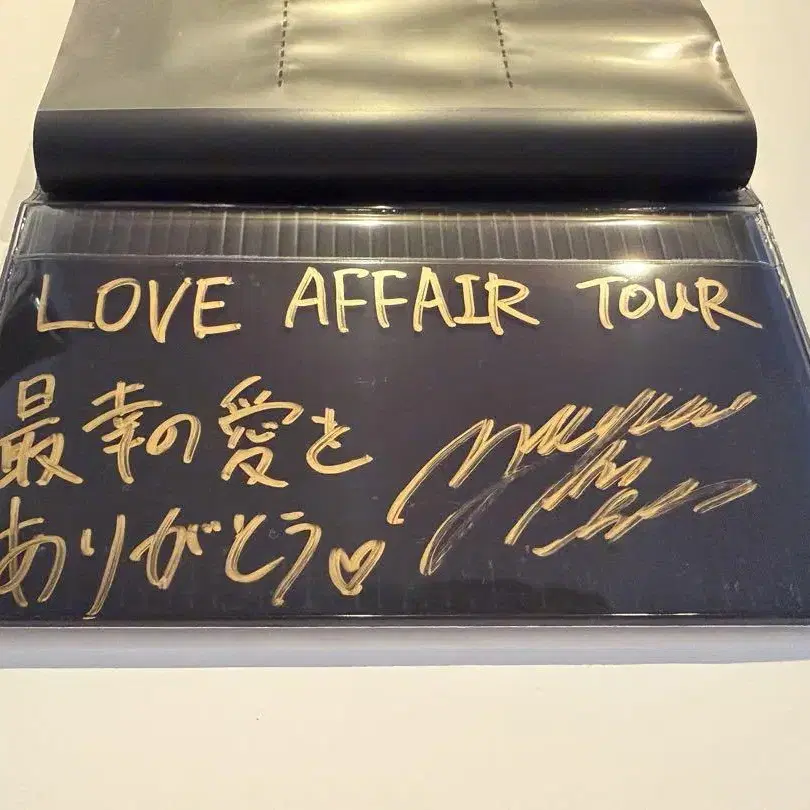 LOVE AFFAIR TOUR
最幸の愛を
ありがとう♡